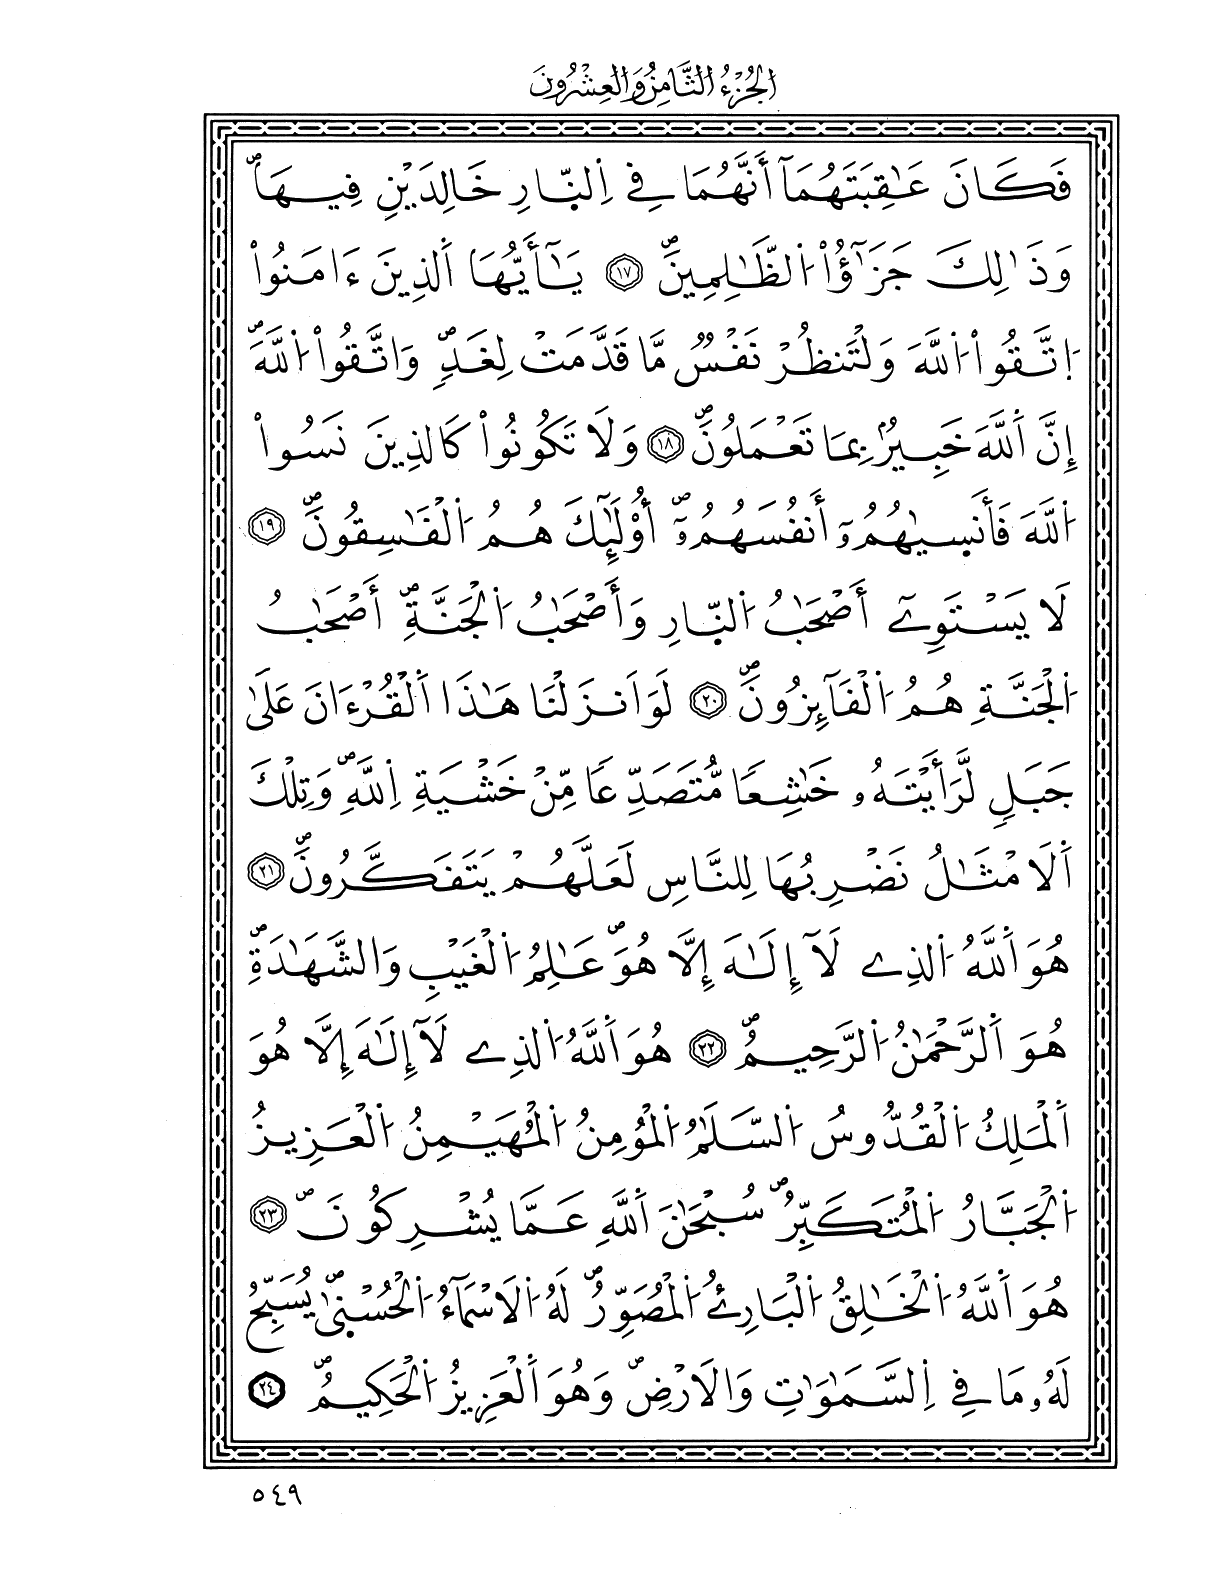 الجُزْءُ الثَّامِنُ وَالْعِشْرُونَ
فَكَانَ عَٰقِبَتَهُمَآ أَنَّهُمَا فِے اِ۬لنّ۪ارِ خَالِدَيْنِ فِيهَاۖ
وَذَٰلِكَ جَزَٰٓؤُاْ اُ۬لظَّٰلِمِينَۖ ١٧ يَٰٓأَيُّهَا اَ۬لذِينَ ءَامَنُواْ
اُ۪تَّقُواْ اُ۬للَّهَ وَلْتَنظُرْ نَفْسٞ مَّا قَدَّمَتْ لِغَدٖۖ وَاتَّقُواْ اُ۬للَّهَۖ
إِنَّ اَ۬للَّهَ خَبِيرُۢ بِمَا تَعْمَلُونَۖ ١٨ وَلَا تَكُونُواْ كَالذِينَ نَسُواْ
اُ۬للَّهَ فَأَنس۪يٰهُمُۥٓ أَنفُسَهُمُۥٓۖ أُوْلَٰٓئِكَ هُمُ اُ۬لْفَٰسِقُونَۖ ١٩
لَا يَسْتَوِےٓ أَصْحَٰبُ اُ۬لنّ۪ارِ وَأَصْحَٰبُ اُ۬لْجَنَّةِۖ أَصْحَٰبُ
اُ۬لْجَنَّةِ هُمُ اُ۬لْفَآئِزُونَۖ ٢٠ لَوَ اَنزَلْنَا هَٰذَا اَ۬لْقُرْءَانَ عَلَىٰ
جَبَلٖ لَّرَأَيْتَهُۥ خَٰشِعاٗ مُّتَصَدِّعاٗ مِّنْ خَشْيَةِ اِ۬للَّهِۖ وَتِلْكَ
اَ۬لَامْثَٰلُ نَضْرِبُهَا لِلنَّاسِ لَعَلَّهُمْ يَتَفَكَّرُونَۖ ٢١
هُوَ اَ۬للَّهُ اُ۬لذِے لَآ إِلَٰهَ إِلَّا هُوَۖ عَٰلِمُ اُ۬لْغَيْبِ وَالشَّهَٰدَةِۖ
هُوَ اَ۬لرَّحْمَٰنُ اُ۬لرَّحِيمُۖ ٢٢ هُوَ اَ۬للَّهُ اُ۬لذِے لَآ إِلَٰهَ إِلَّا هُوَ
اَ۬لْمَلِكُ اُ۬لْقُدُّوسُ اُ۬لسَّلَٰمُ اُ۬لْمُؤْمِنُ اُ۬لْمُهَيْمِنُ اُ۬لْعَزِيزُ
اُ۬لْجَبَّارُ اُ۬لْمُتَكَبِّرُۖ سُبْحَٰنَ اَ۬للَّهِ عَمَّا يُشْرِكُونَۖ ٢٣
هُوَ اَ۬للَّهُ اُ۬لْخَٰلِقُ اُ۬لْبَارِئُ اُ۬لْمُصَوِّرُۖ لَهُ اُ۬لَاسْمَآءُ اُ۬لْحُسْن۪يٰۖ يُسَبِّحُ
لَهُۥ مَا فِے اِ۬لسَّمَٰوَٰتِ وَالَارْضِۖ وَهُوَ اَ۬لْعَزِيزُ اُ۬لْحَكِيمُۖ ٢٤
٥٤٩